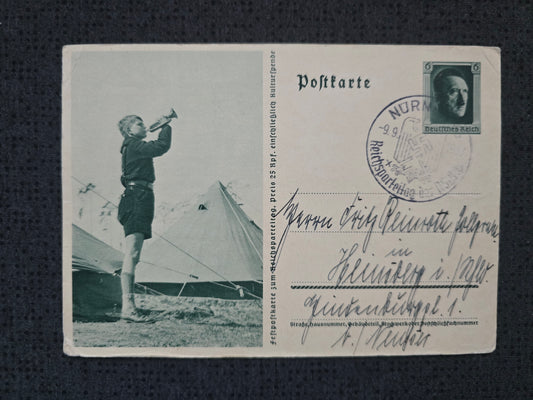 Postkarte
6 6
Deutsches Reich
NÜRN
-9.9.
Reichsparteitag der NSDAP
Festpostkarte zum Reichsparteitag. Preis 25 Rpf. einschließlich Kulturspende
Herrn Fritz
in
Heinsberg i./Rhld
Hindenburgpl. 1.
Straße, Hausnummer, Gebäudeteil, Stockwerk oder Postschließfachnummer